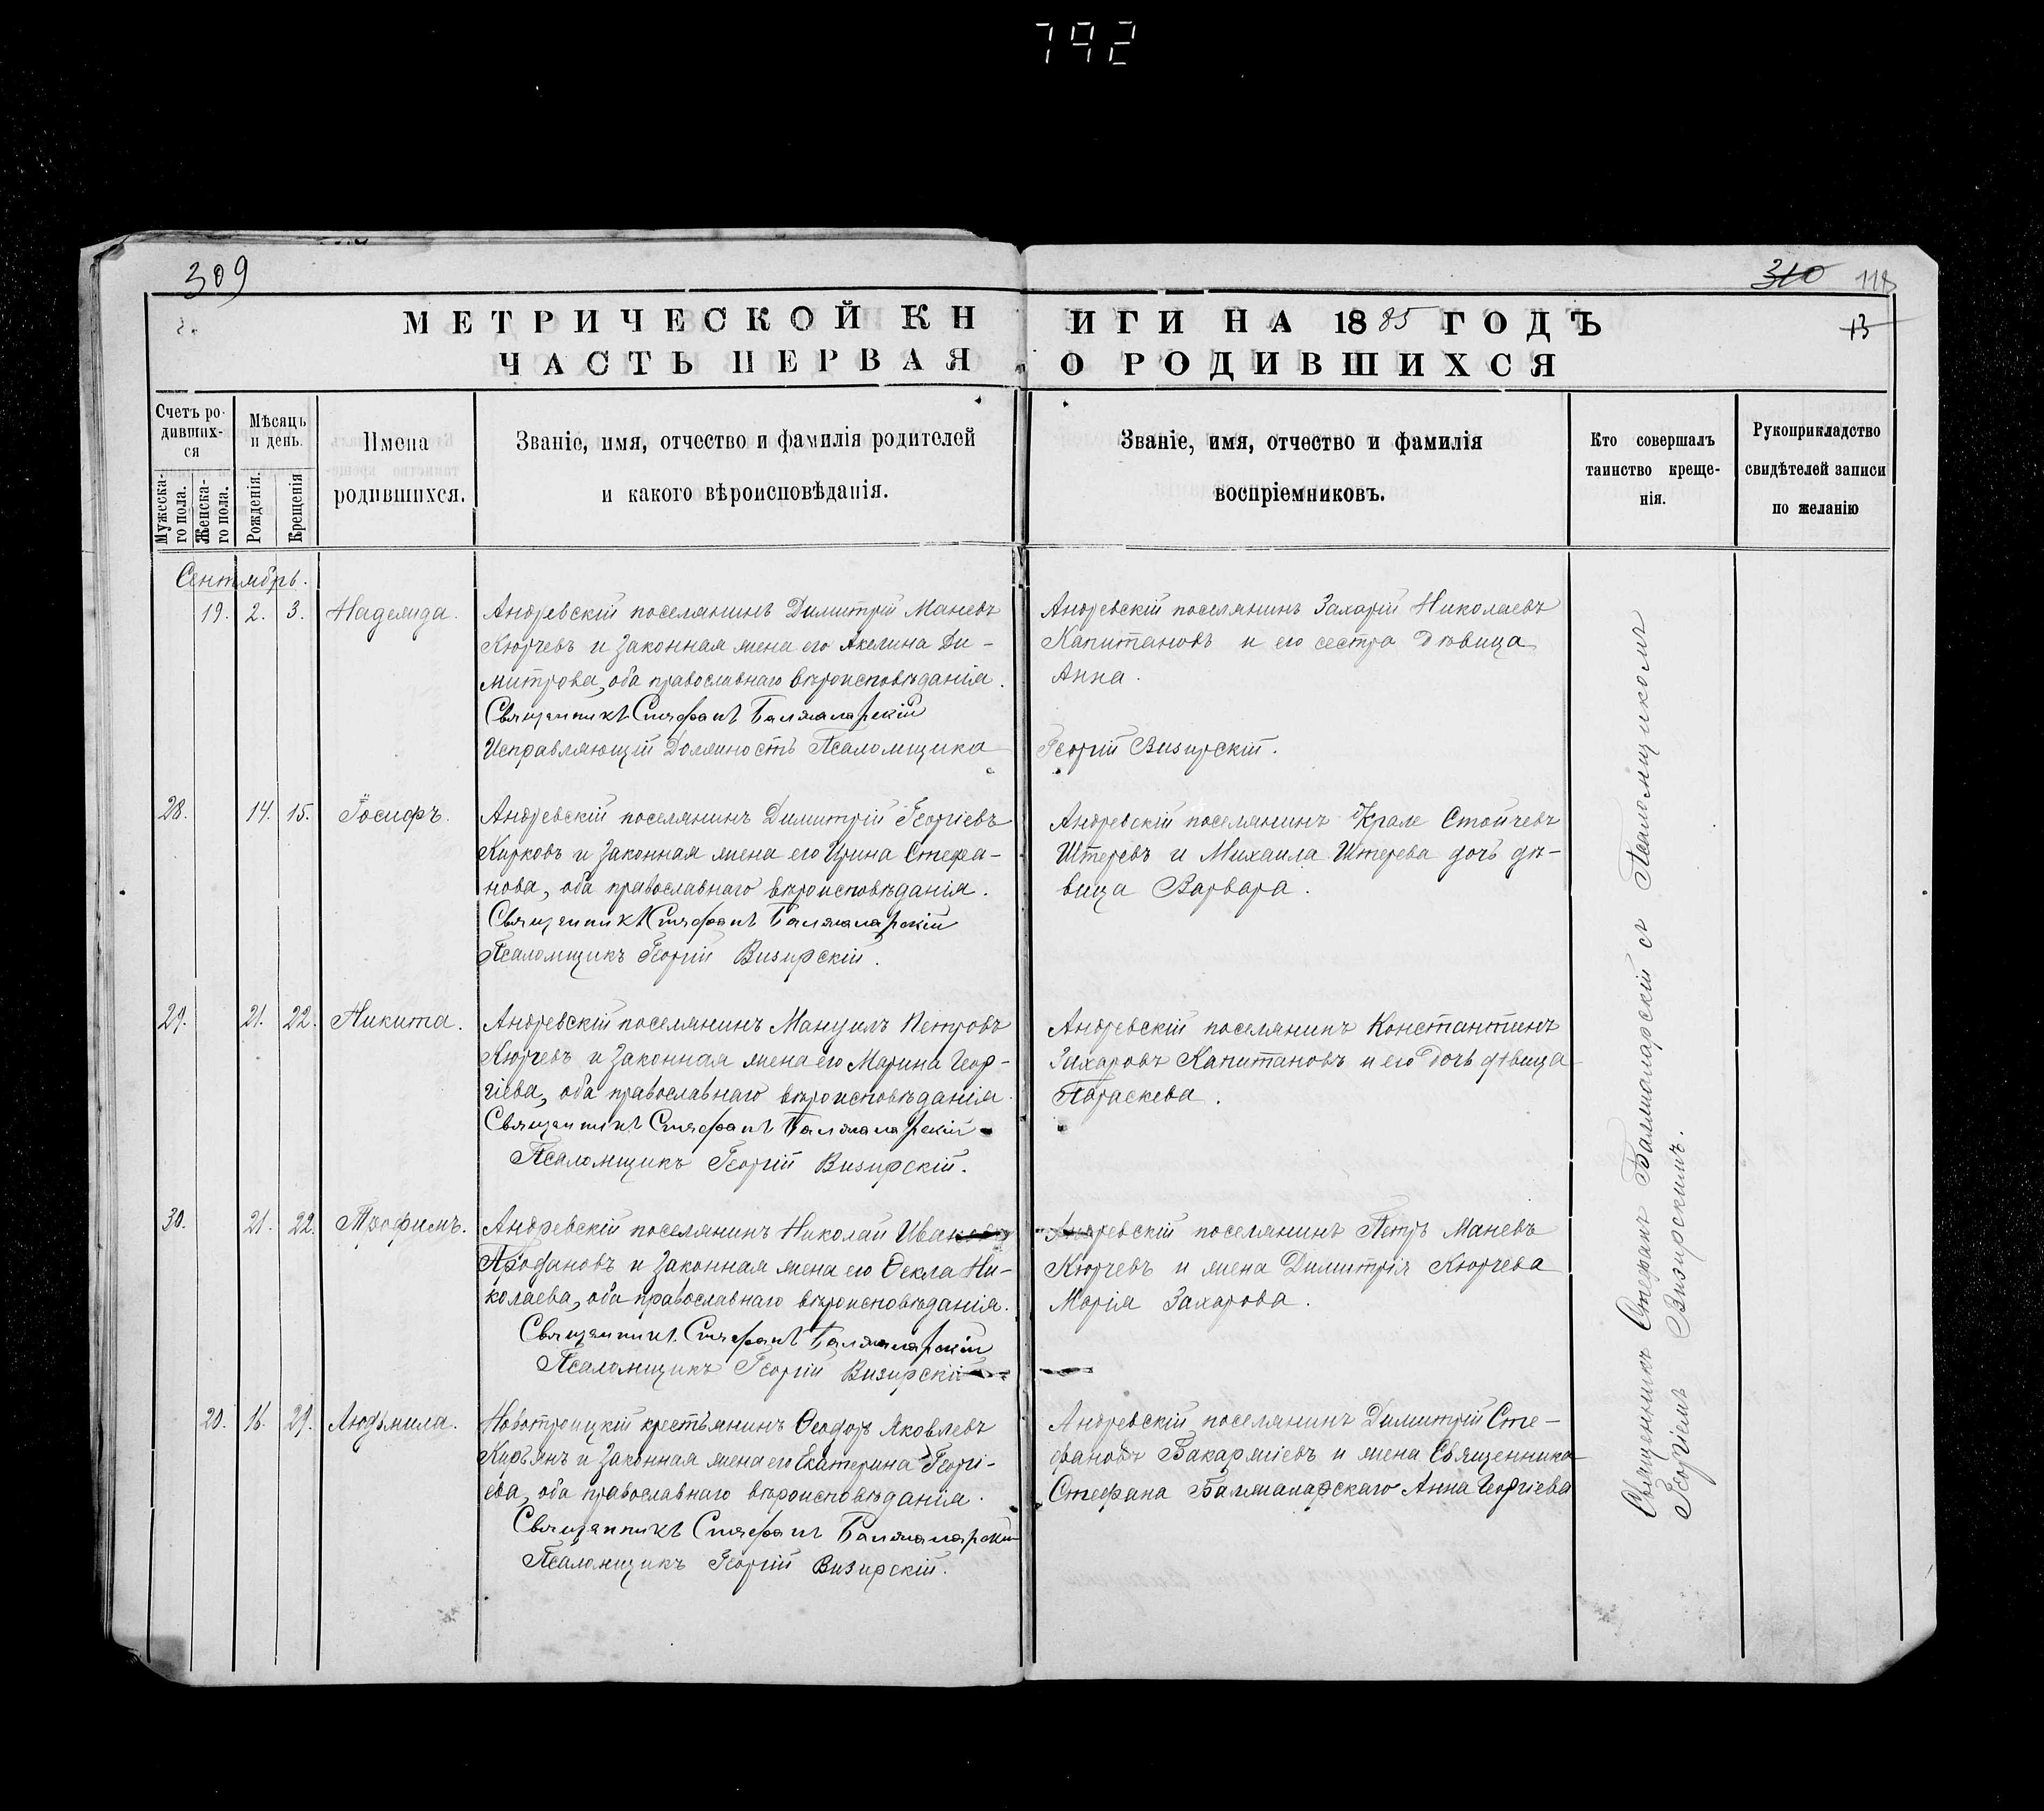 792
309
310 118
МЕТРИЧЕСКОЙ КНИГИ НА 1885 ГОДЪ
13
ЧАСТЬ ПЕРВАЯ О РОДИВШИХСЯ
Счетъ родившихся
Мужескаго пола.
Женскаго пола.
Мѣсяцъ и день.
Рожденія.
Крещенія
Имена
родившихся.
Званіе, имя, отчество и фамилія родителей
и какого вѣроисповѣданія.
Званіе, имя, отчество и фамилія
воспріемниковъ.
Кто совершалъ
таинство креще-
нія.
Рукоприкладство
свидѣтелей записи
по желанію
Сентябрь.
19. 2. 3. Надежда.
Андревскій поселянинъ Димитрій Маневъ
Кюрчевъ и законная жена его Акелина Ди-
митрова, оба православнаго вѣроисповѣданія.
Священникъ Стефанъ Балжаларскій
Исправляющій должность Псаломщика
Андревскій поселянинъ Захарій Николаевъ
Капитановъ и его сестра дѣвица
Анна.
Георгій Визирскій.
28. 14. 15. Іосифъ.
Андревскій поселянинъ Димитрій Георгіевъ
Кирковъ и законная жена его Ирина Стефа-
нова, оба православнаго вѣроисповѣданія.
Священникъ Стефанъ Балжаларскій
Псаломщикъ Георгій Визирскій.
Андревскій поселянинъ Крале Стойчевъ
Штеревъ и Михаила Штерева дочь дѣ-
вица Варвара.
29. 21. 22. Никита.
Андревскій поселянинъ Мануилъ Петровъ
Кюрчевъ и законная жена его Марина Геор-
гіева, оба православнаго вѣроисповѣданія.
Священникъ Стефанъ Балжаларскій
Псаломщикъ Георгій Визирскій.
Андревскій поселянинъ Константинъ
Захаровъ Капитановъ и его дочь дѣвица
Параскева.
30. 21. 22. Трофимъ.
Андревскій поселянинъ Николай Ивановъ
Продановъ и законная жена его Ѳекла Ни-
колаева, оба православнаго вѣроисповѣданія.
Священникъ Стефанъ Балжаларскій
Псаломщикъ Георгій Визирскій
Андревскій поселянинъ Петръ Маневъ
Кюрчевъ и жена Димитрія Кюрчева
Марія Захарова.
20. 16. 29. Людмила.
Новотроицкій крестьянинъ Ѳеодоръ Яковлевъ
Кирьянъ и законная жена его Екатерина Георгі-
ева, оба православнаго вѣроисповѣданія.
Священникъ Стефанъ Балжаларскій
Псаломщикъ Георгій Визирскій.
Андревскій поселянинъ Димитрій Сте-
фановъ Бакаржіевъ и жена Священника
Стефана Балжаларскаго Анна Георгіева
Священникъ Стефанъ Балжаларскій съ Псаломщикомъ
Георгіемъ Визирскимъ.